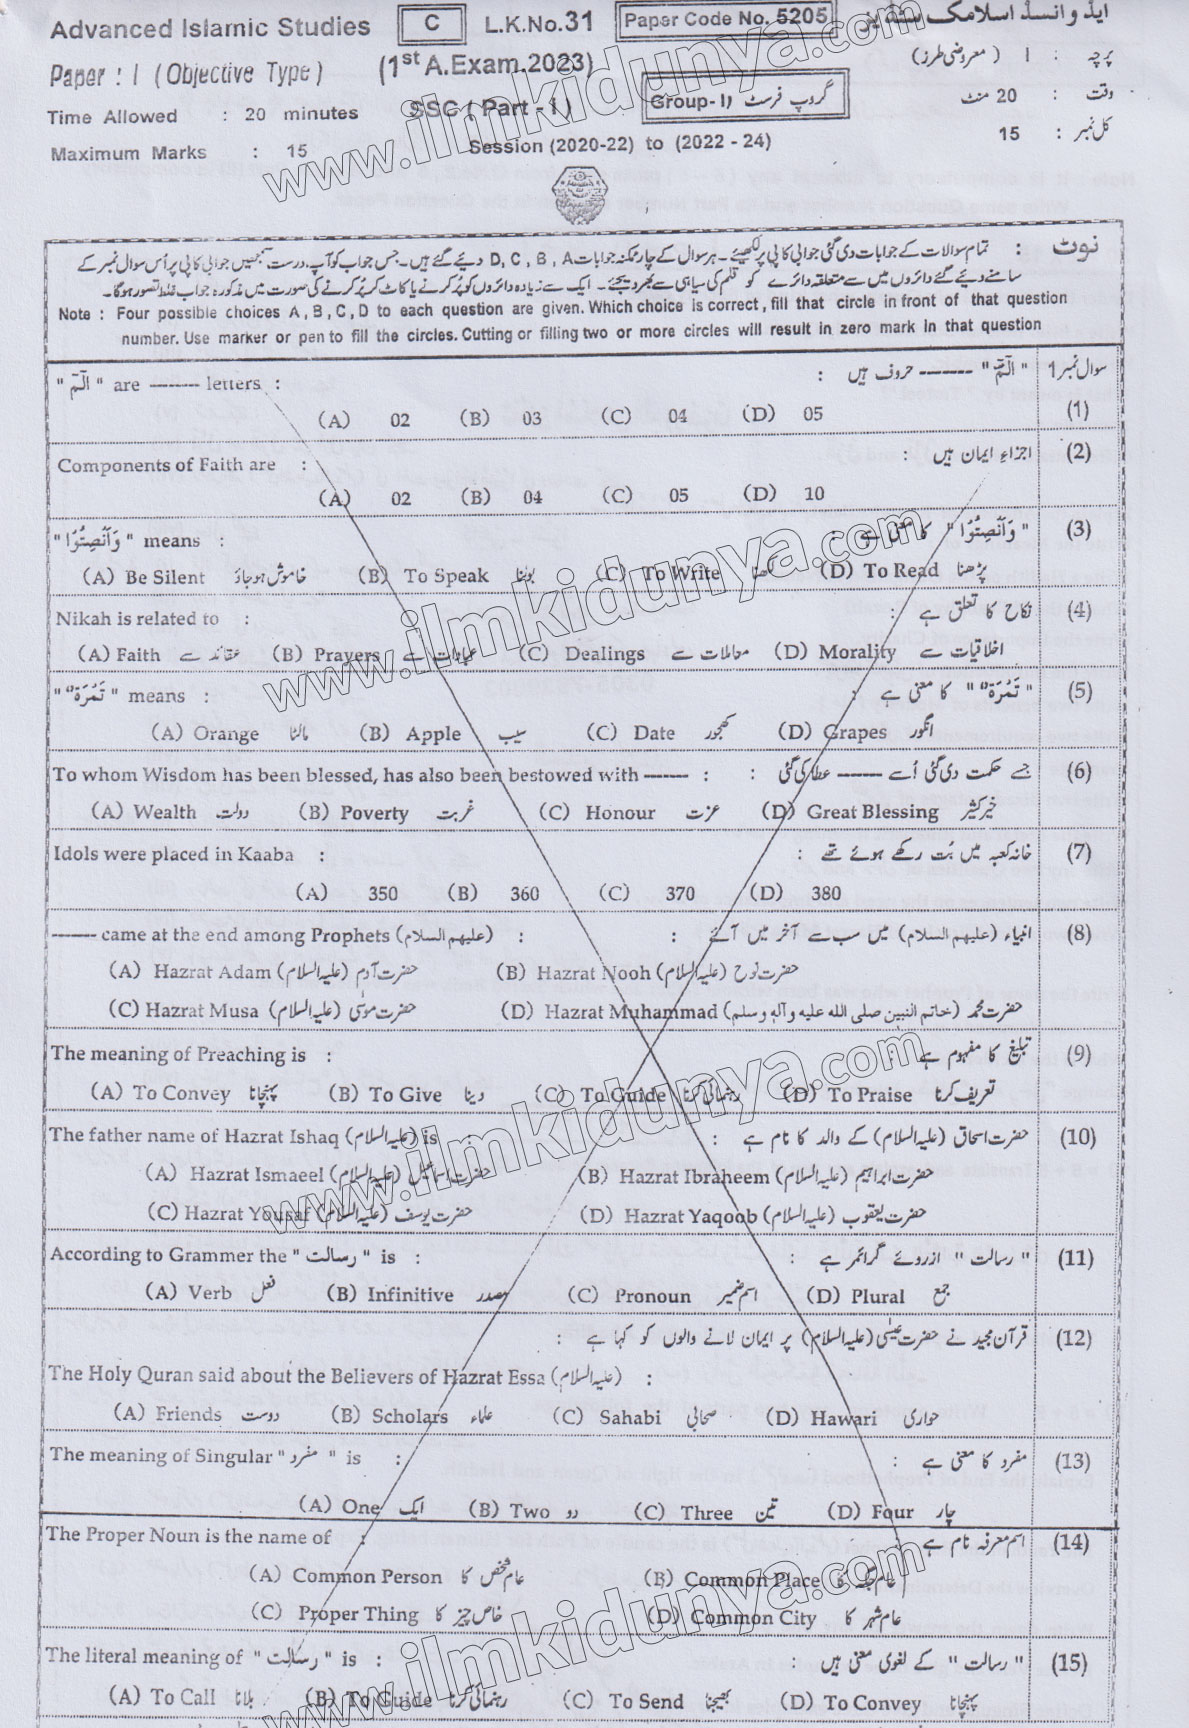 Advanced Islamic Studies C L.K.No.31 Paper Code No. 5205 ایڈوانسڈ اسلامک سٹڈیز
Paper : I (Objective Type) (1st A.Exam.2023) پرچہ : I (معروضی طرز)
Time Allowed : 20 minutes SSC ( Part - I ) Group- I گروپ فرسٹ وقت : 20 منٹ
Maximum Marks : 15 Session (2020-22) to (2022 - 24) کل نمبر : 15
نوٹ : تمام سوالات کے جوابات دی گئی جوابی کاپی پر لکھیئے۔ ہر سوال کے چار ممکنہ جوابات D, C, B, A دیئے گئے ہیں۔ جس جواب کو آپ درست سمجھیں جوابی کاپی پر اُس سوال نمبر کے
سامنے دیئے گئے دائروں میں سے متعلقہ دائرے کو قلم کی سیاہی سے بھر دیجئے۔ ایک سے زیادہ دائروں کو پُر کرنے یا کاٹ کر پُر کرنے کی صورت میں مذکورہ جواب غلط تصور ہوگا۔
Note : Four possible choices A , B , C , D to each question are given. Which choice is correct , fill that circle in front of that question
number. Use marker or pen to fill the circles. Cutting or filling two or more circles will result in zero mark in that question
سوال نمبر 1
(1) " الٓمّٓ " ------ حروف ہیں : " الٓمّٓ " are ------ letters :
(A) 02 (B) 03 (C) 04 (D) 05
Components of Faith are : اجزاءِ ایمان ہیں : (2)
(A) 02 (B) 04 (C) 05 (D) 10
" وَاَنْصِتُوْا " means : " وَاَنْصِتُوْا " کا معنیٰ ہے : (3)
(A) Be Silent خاموش ہو جاؤ (B) To Speak بولنا (C) To Write لکھنا (D) To Read پڑھنا
Nikah is related to : نکاح کا تعلق ہے : (4)
(A) Faith عقائد سے (B) Prayers عبادات سے (C) Dealings معاملات سے (D) Morality اخلاقیات سے
" تَمْرَةٌ " means : " تَمْرَةٌ " کا معنیٰ ہے : (5)
(A) Orange مالٹا (B) Apple سیب (C) Date کھجور (D) Grapes انگور
To whom Wisdom has been blessed, has also been bestowed with ------ : جسے حکمت دی گئی اُسے ------ عطا کی گئی : (6)
(A) Wealth دولت (B) Poverty غربت (C) Honour عزت (D) Great Blessing خیرِ کثیر
Idols were placed in Kaaba : خانہ کعبہ میں بُت رکھے ہوئے تھے : (7)
(A) 350 (B) 360 (C) 370 (D) 380
------ came at the end among Prophets (علیہم السلام) : انبیاء (علیہم السلام) میں سب سے آخر میں آئے : (8)
(A) Hazrat Adam (علیہ السلام) حضرت آدم (B) Hazrat Nooh (علیہ السلام) حضرت نوح
(C) Hazrat Musa (علیہ السلام) حضرت موسیٰ (D) Hazrat Muhammad (خاتم النبیین صلی اللہ علیہ وآلہٖ وسلم) حضرت محمد
The meaning of Preaching is : تبلیغ کا مفہوم ہے : (9)
(A) To Convey پہنچانا (B) To Give دینا (C) To Guide رہنمائی کرنا (D) To Praise تعریف کرنا
The father name of Hazrat Ishaq (علیہ السلام) is : حضرت اسحاق (علیہ السلام) کے والد کا نام ہے : (10)
(A) Hazrat Ismaeel (علیہ السلام) حضرت اسماعیل (B) Hazrat Ibraheem (علیہ السلام) حضرت ابراہیم
(C) Hazrat Yousaf (علیہ السلام) حضرت یوسف (D) Hazrat Yaqoob (علیہ السلام) حضرت یعقوب
According to Grammer the " رسالت " is : " رسالت " ازروئے گرائمر ہے : (11)
(A) Verb فعل (B) Infinitive مصدر (C) Pronoun اسم ضمیر (D) Plural جمع
قرآن مجید نے حضرت عیسیٰ (علیہ السلام) پر ایمان لانے والوں کو کہا ہے : (12)
The Holy Quran said about the Believers of Hazrat Essa (علیہ السلام) :
(A) Friends دوست (B) Scholars علماء (C) Sahabi صحابی (D) Hawari حواری
The meaning of Singular " مفرد " is : مفرد کا معنیٰ ہے : (13)
(A) One ایک (B) Two دو (C) Three تین (D) Four چار
The Proper Noun is the name of : اسم معرفہ نام ہے : (14)
(A) Common Person عام شخص کا (B) Common Place عام جگہ کا
(C) Proper Thing خاص چیز کا (D) Common City عام شہر کا
The literal meaning of " رسالت " is : " رسالت " کے لغوی معنیٰ ہیں : (15)
(A) To Call بلانا (B) To Guide رہنمائی کرنا (C) To Send بھیجنا (D) To Convey پہنچانا
www.ilmkidunya.com
www.ilmkidunya.com
www.ilmkidunya.com
www.ilmkidunya.com